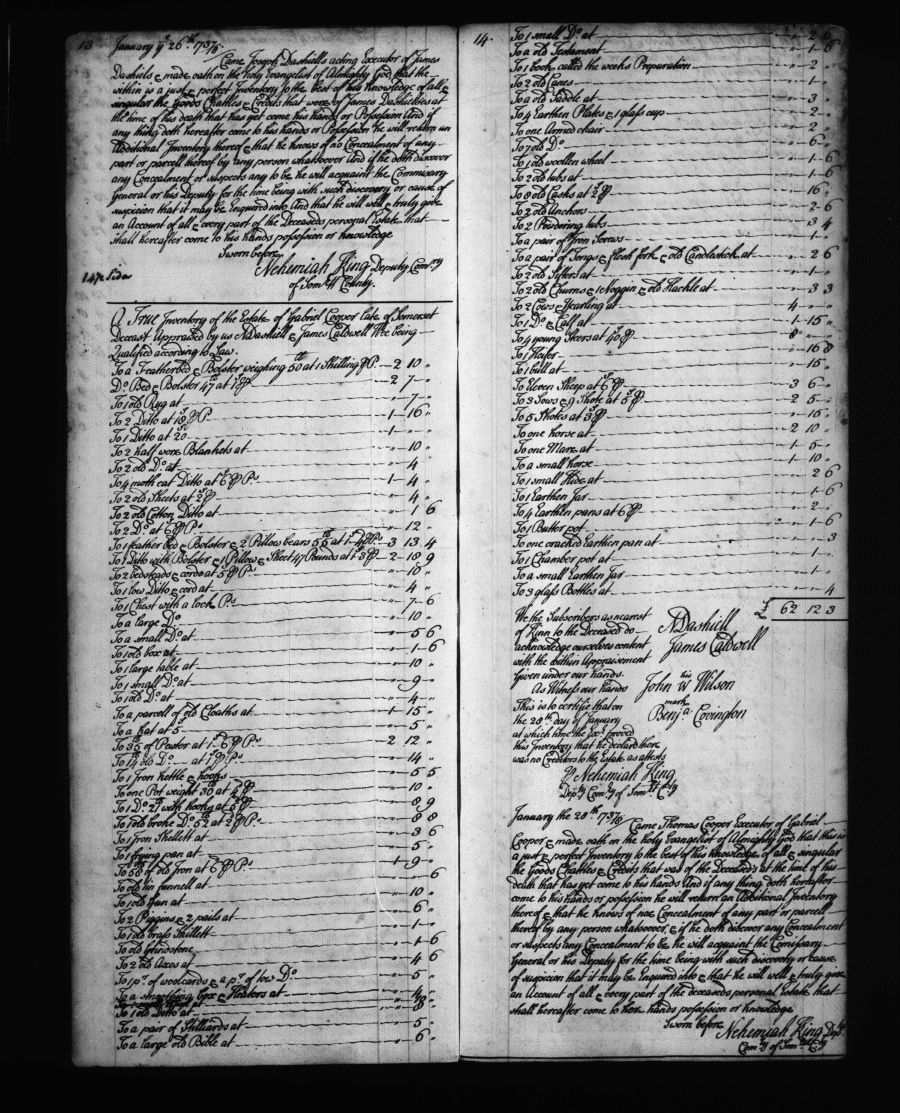 13
January ye 26th 1737/8
Came Joseph Dashiells acting Executor of James
Dashiels & made oath on the holy Evangelist of Almighty God that the
within is a just & perfect Inventory to the best of his knowledge of all &
singular the Goods Chattles & Credits that were of James Dashielles at
the time of his death that has yet come his hands or Possession And if
any thing doth hereafter come to his hands or Possession he will return an
Additional Inventory thereof & that he knows of no Concealment of any
part or parcell thereof by any person whatsoever And if he doth discover
any Concealment or suspects any to be he will acquaint the Commisary
General or his Deputy for the time being with such discovery or cause of
suspicion that it may be Enquired into And that he will well & truly give
an Account of all & every part of the Deceaseds personal Estate that
shall hereafter come to his hands possession or knowledge
Sworn before
Nehemiah King Deputy Comry
of Somst County.
A True Inventory of the Estate of Gabriel Cooper late of Somerset
Deceast Appraised by us ADashiell & James Caldwell Wee being
Qualified according to Law.
To a Featherbed & Bolster weighing 50 lb at 1 Shilling P P. 2 10 "
Do Bed & Bolster 47 lb at 1s P 2 7 "
To 1 old Rug at " 7 "
To 2 Ditto at 18s P P 1 16 "
To 1 Ditto at 20s 1 " "
To 2 half wore Blankets at " 10 "
To 2 old Do at " 4 "
To 4 moth eat Ditto at 6s P Ps 1 4 "
To 2 old Sheets at 2s P " 4 "
To 2 old Cotton Ditto at " 1 6
To 2 Do at 6s P Ps " 12 "
To 1 feather bed & Bolster & 2 Pillow bears 55 lb at 1-4 P P. 3 13 4
To 1 Ditto with Bolster & 1 Pillow & Sheet 47 Pounds at 1s 3 P 2 18 9
To 2 bedsteads & cords at 5s P Ps " 10 "
To 1 low Ditto & cord at " 4 "
To 1 Chest with a lock Ps " 7 6
To a large Do " 10 "
To a small Do at " 5 6
To 1 old box at " 1 6
To 1 large table at " 10 "
To 1 small Do at " 9 "
To 1 old Do at " 4 "
To a parcell of old Cloaths at 1 15 "
To a hat at 5s " 5 "
To 35 lb of Pewter at 1-6 P Ps 2 12 "
To 14 lb old Do at 1s P Ps " 14 "
To 1 Iron kettle & hooks " 5 5
To one Pot weight 30 lb at 4 P " 10 "
To 1 Do 21 lb with hooks at 5 P " 8 9
To 1 old broke Do 52 lb at 2 P Ps " 8 8
To 1 Iron Skellett at " 3 6
To 1 frying pan at " 5 "
To 58 lb of old Iron at 6 P Ps 1 9 "
To old tin funnell at " " 6
To 1 old Gun at " 10 "
To 2 Piggins & 2 pails at " 6 "
To 1 old brass Skillett " 1 "
To old Grindstone " 1 6
To 2 old Axes at " 4 6
To 1 pr of woolcards & a pr of tow Do " 5 "
To a smoothing box & Heaters at " 4 "
To 1 old Ditto at " 8 "
To a pair of Stilliards at " 5 "
To a large old Bible at " 6 "
14.
To 1 small Do at " 2 6
To a old Testament " 1 6
To 1 book called the weeks Preparation " 2 "
To 2 old Canes " 1 "
To a old Saddle at " 3 "
To 4 Earthen Plates & 1 glass cup " 2 "
To one Armed chair " 2 "
To 7 old Do " 6 "
To 1 old woollen wheel " 1 6
To 2 old tubs at " 1 6
To 8 old Casks at 2s P " 16 "
To 2 old Anchors " 2 6
To 2 Powdering tubs " 3 4
To a pair of Iron Screws " 1 "
To a pair of Tongs & flesh fork & old Candlestick at " 2 6
To 2 old Sifters at " 1 "
To 2 old Churns & 1 Noggin & old Hackle at " 3 3
To 2 Cows & Yearling at 4 " "
To 1 Do & Calf at 1 15 "
To 4 young Steers at 40s P 8 " "
To 1 Heifer " 16 8
To 1 bull at " 15 "
To Eleven Sheep at 6s P 3 6 "
To 3 Sows & 9 Shote at 5s P 2 5 "
To 5 Shotes at 3s P " 15 "
To one horse at 2 10 "
To one Mare at 1 5 "
To a small horse 1 10 "
To 1 small Hide at " 2 6
To 1 Earthen Jar " 1 6
To 4 Earthen pans at 6 P " 2 "
To 1 Butter pot " 1 6
To one cracked Earthen pan at " " 3
To 1 Chamber pot at " 1 "
To a small Earthen Jar " 1 "
To 3 glass Bottles at " " 4
£ 62 12 3
We the Subscribers as nearest
of Kinn to the Deceased do
acknowledge ourselves content
with the within Appraisement
Given under our hands.
As Witness our hands
ADashiell
James Caldwell
John W Wilson
his
mark
Benja. Covington
This is to certifie that on
the 28th day of January
at which time the Exr. proved
this Inventory that he declard there
was no Creditors to the Estate as attests
P Nehemiah King
Depty Comry of Somst Cty
January the 28th 1737/8
Came Thomas Cooper Executor of Gabriel
Cooper & made oath on the holy Evangelist of Almighty God that this is
a just & perfect Inventory to the best of his knowledge of all & singular
the Goods Chattles & Credits that was of the Deceaseds at the time of his
death that has yet come to his hands And if any thing doth hereafter
come to his hands or possession he will return an Additional Inventory
thereof & that he knows of noe Concealment of any part or parcell
thereof by any person whatsoever & if he doth discover any Concealment
or suspects any Concealment to be he will acquaint the Comissary
General or his Deputy for the time being with such discovery or cause
of suspicion that it may be Enquired into & that he will well & truly give
an Account of all & every part of the deceaseds personal Estate that
shall hereafter come to her hands possession or knowledge
Sworn before Nehemiah King Depty
Comry of Somst Cty